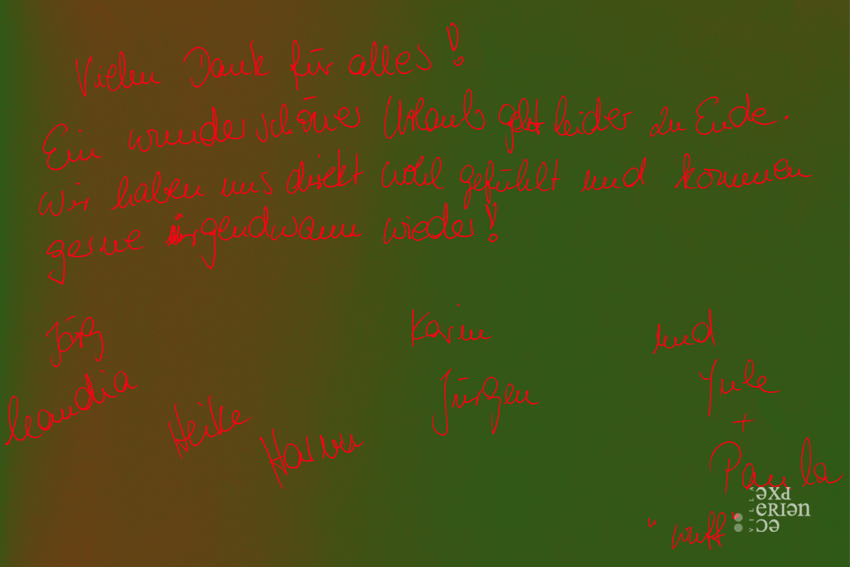 Vielen Dank für alles!
Ein wunderschöner Urlaub geht leider zu Ende.
Wir haben uns direkt wohl gefühlt und kommen
gerne irgendwann wieder!
Jörg
Karin
und
Claudia
Heike
Jürgen
Jule
+
Paula
"wuff"
VILLA
EXPERIENCE